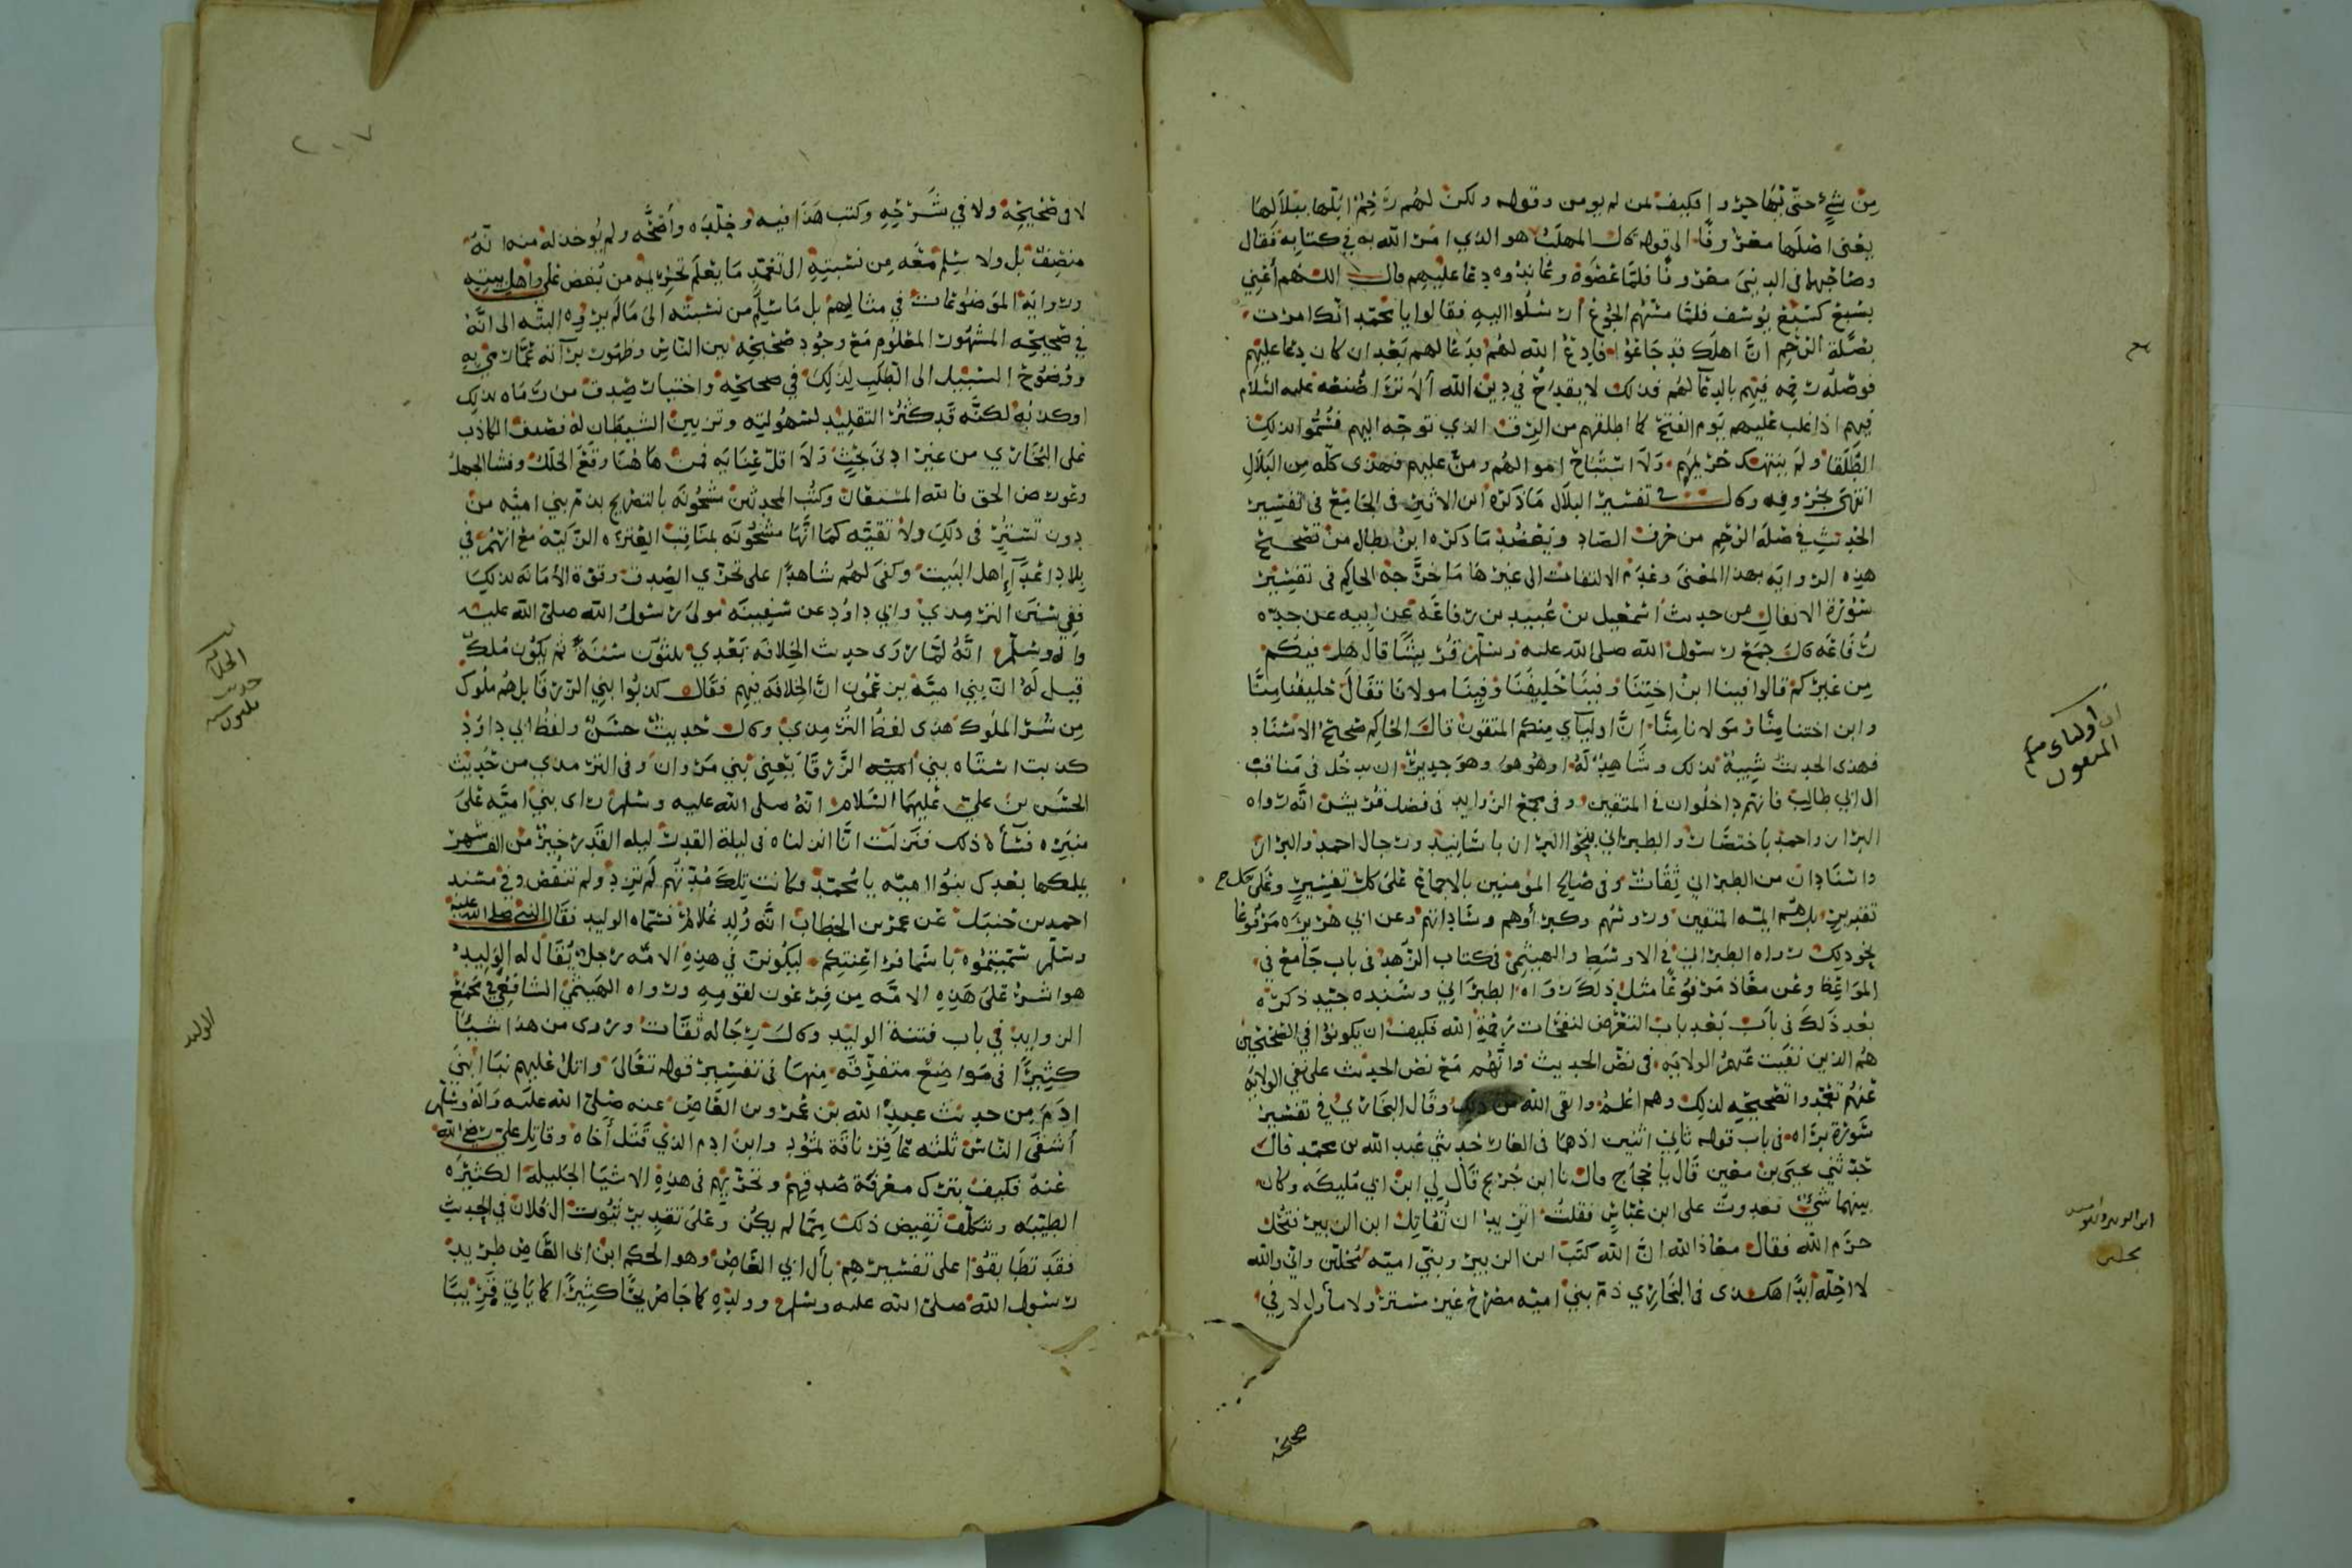 مِن شيء حتى يهاجروا فكيف لمن لم يومن وقوله ولكن لهم رَحِمٌ ابُلّها ببلالها
يعنى اصلها معروفًا الى قوله قال المهلب هو الذي امر الله به في كتابه فقال
وصاحبهما فى الدنيى معروفًا فلمّا عصَوه وعاندوه دعا عليهم فقال اللهم أعِنّي
بسَبع كسَبع يوسف فلمّا مسّهم الجوع ارسلوا اليه فقالوا يا محمّد انّك امرت
بصلة الرّحِم انّ اهلك قد جَاعُوا فادع الله لهم فدَعا لهم بَعد ان كان دعا عليهم
فوصَلَ رحمه فيهم بالدعآ لهم فذلك لا يقدح في دين الله ألا ترى صُنعه عليه السّلام
فيهم اذا غلب عليهم يَوم الفتح كما اطلقهم من الرق الذي توجّه اليهم فسُمُّوا لذلك
الطُّلَقا ولم ينتهك حريمَهم وَلا استَباح اموالهم ومنّ عليهم فهذى كلّه مِن البَلال
انتهَى بحروفه وكان في تفسير البلال مَا ذكره ابن الاثير فى الجامع فى تفسير
الحديث في صلة الرّحِم من حرف الصّاد ويَعضُد مَا ذكره ابن بطّال من تصحيح
هذِه الروايَه بهذا المعنىَ وعَدَم الالتفات الى غيرهَا مَا خرّجهُ الحاكم فى تفسير
سُورة الانفال من حديث اسمعيل بن عُبيد بن رفاعَة عن ابيه عن جدّه
رفاعَه قال جمع رسول الله صلى الله عليه وسلّم قريشًا قال هل فيكم
مِن غيركم قالوا فينا ابنُ اختِنَا وفينَا حَليفنَا وَفينَا مولانَا فقالَ حليفنا مِنّا
وابن اختنا مِنّا وَمولانا مِنّا انّ اوليآي مِنكم المتقون قال الحاكم صحيح الاسنَاد
فهذى الحديث شبيهٌ بذلك وشاهدٌ لَهُ او هُو هو وهوَ جدير ان يدخُل فى مَناقب
ال ابي طالب فانهم داخلون في المتقين وفى مجمع الزوايد فى فضل قريش انّه رواه
البزار واحمد باختصَار والطبراني بنحو البزار باسَانيد ورجال احمد والبزار
واسنادان من الطبراني ثِقَات وفى صَالح المومنين بالاجماع عَلى كل تفسيرٍ وعلى كل ح
تقديرٍ بل هُم ايمّه المتقين ورووسُهم وكبرآوهم وسَاداتهم وعن ابي هُريره مَرفُوعًا
نحو ذلك رواه الطبراني في الاوسَطِ والهيثمي فى كتاب الزّهد فى باب جامع في
المَوَاعِظ وعَن معَاذ مَرفُوعًا مثل ذلك رَوَاه الطبَرَاني وسَنَده جيّد ذكرَه
بعد ذلك فى باب بَعد باب التعرّض لنفحَات رَحمَةِ الله فكيف ان يكونوا في الصّحيحين
هُم الذين نفيت عَنهمُ الولايَه فى نصّ الحديث وانّهُم مَع نصّ الحديث على نفى الولايَه
عَنهُم تعَمّدوا تصحيحَه لذلك وهم اعلَم واتقى الله من ذلك وقال البخاري في تفسير
سَورة برَاه فى باب قوله ثانيَ اثنين اذ هما فى الغار حَديثي عَبد الله بن محمّد قال
حدّثني يحيى بن معين قال يا حجاج قال نا ابن جُريج قَال لي ابن ابي مُليكَه وكان
بينهما شيٌ فغدوت على ابن عَبّاس فقلتُ اتريد ان تُقاتل ابن الزبير فتُحل
حرَم الله فقال معَاذ الله انّ الله كتَب ابن الزبير وبني اميّه مُحلّين واني والله
لا احِلّه أبدًا هكذى فى البخَاري ذمّ بني اميّه مصَرّح غير مستتر ولا مأول لا في
صحيحه
ان اولياى منكم المتقون
ابن الزبير وبنو اميه محلين
٢٠٧
لا فى صَحيحِه ولا في شَرحِه وكتب هَذا فيه وخلّده وأصَحّه ولم يُوخذ له منه انّهُ
منصِفٌ بل ولا سَلِم مَعَه مِن نسبتِه الى تعَمّد مَا يَعلم تحريمه من بُغض عَلى واهل بيته
وروايَة الموضوعَات في مثالبهم بل مَا سَلِم من نسبتَه الىَ مَا لَم يروه البتّه الى انّهُ
في صَحيحِه المشهُور المعْلُوم مَعَ وجُود صَحيحَه بين النّاس وظهُور برآته عمّا رمي به
ووُضوح السّبيل الى الطلَب لذلك في صحيحِه واختبار صِدق من رمَاه بذلك
او كذبه لكنّه قَد كثُر التقليد لسُهولته وتزيين الشيطَان له فصُدق الكاذب
عَلى البُخَاري من غير ادنىَ بَحث وَلا اقلّ عِنايَه فمن هَا هُنا وقَع الخلل وفشا الجهلُ
وعُورض الحق فالله المستعان وكتُب المحدثين مشحُونَه بالتصريح بذم بني اميّه من
دون تسَتّر فى ذلك ولا تقيّه كما انّها مشحُونَه بمنَاقب العِتره الزّكيّة مع انّهُم في
بلاد اعدَآ اهل البَيت وكفىَ لهُم شاهدًا على تحرّي الصّدق وقوّة الأمَانَه لذلك
ففى سُنن الترمدي وابي داوُد عن سَفينَه مَولىَ رَسُول الله صلّى الله عليه
واله وسَلّم انّهُ لمّا رَوى حديث الخلافَه بَعْدي ثلثون سَنَة ثم يَكون مُلكٌ
قيل لهُ انّ بني اميّة يزعمُون انّ الخِلافَه فيهم فقَال كذبُوا بني الزّرقَا بل هُم مُلوك
مِن شرّ الملُوك هَذى لفظُ التِرمِدي وقال حَديثٌ حسَنٌ ولفظ ابي داوُد
كذبت استَاه بني اميه الزّرقَا يَعني بَني مَروان وفى الترمدي من حَديث
الحسَن بنَ علي عليهمَا السّلام انّهُ صلى الله عليه وسلم رأى بني اميّه عَلىَ
منبَره فسَآه ذلك فنَزلَت انّا انزلناه فى ليلة القدر ليله القَدر خيرٌ من الف شهر
يملكها بعدَك بنُوا اميّه يا مُحمّد وكانت تِلك مُدّتهُم لَم تزد ولم تنقُص وفى مسْند
احمد بن حنبَل عَن عمَر بن الخطاب انّه وُلد غلامٌ فسَمّاه الوليد فقال النبي صلى الله عليه
وسلم سَمّيتمُوه باسمَا فراعِنتِكم ليكُونن في هذِه الامّه رجلٌ يُقَالُ له الوَليد
هوَ اشرّ عَلىَ هَذِه الامّه مِن فِرعَون لقومِهِ ورَواه الهيثميُّ الشافعي في مَجمَع
الزوايد في باب فتنة الوليد وقال رجَاله ثقات وروى من هذا شيئًا
كثيرًا فى مَواضِعَ متفرّقَه مِنهَا فى تفسير قوله تعَالى واتلُ عليهم نبَا ابنيَ
ادَم مِن حديث عبد الله بن عَمرو بن العاص عنه صَلى الله عليه وآله وسَلم
أشقَى النّاس ثلثه عَاقِر ناقَة ثمُود وابن ادم الذي قَتل أخَاه وقاتل علي رضي الله
عَنهُ فكيف يترك معرفَة صدقِهم وتحرّيهم فى هذِهِ الاشيَا الجليلَة الكثيره
الطيّبَه ويتكلّف نقِيض ذلك ممّا لم يكن وعَلىَ تقدير ثبُوت ال فلان في الحديث
فقَد تطَابقُوا على تفسيرهِم بأل ابي العَاص وهو الحكم ابن ابي العَاص طريد
رسُول الله صلى الله عليه وسلم وولدِهِ كما جَا ضريحًا كثيرًا كما يَاتي قريبًا
الخلافه حديث ثلثون سنه
الوليد